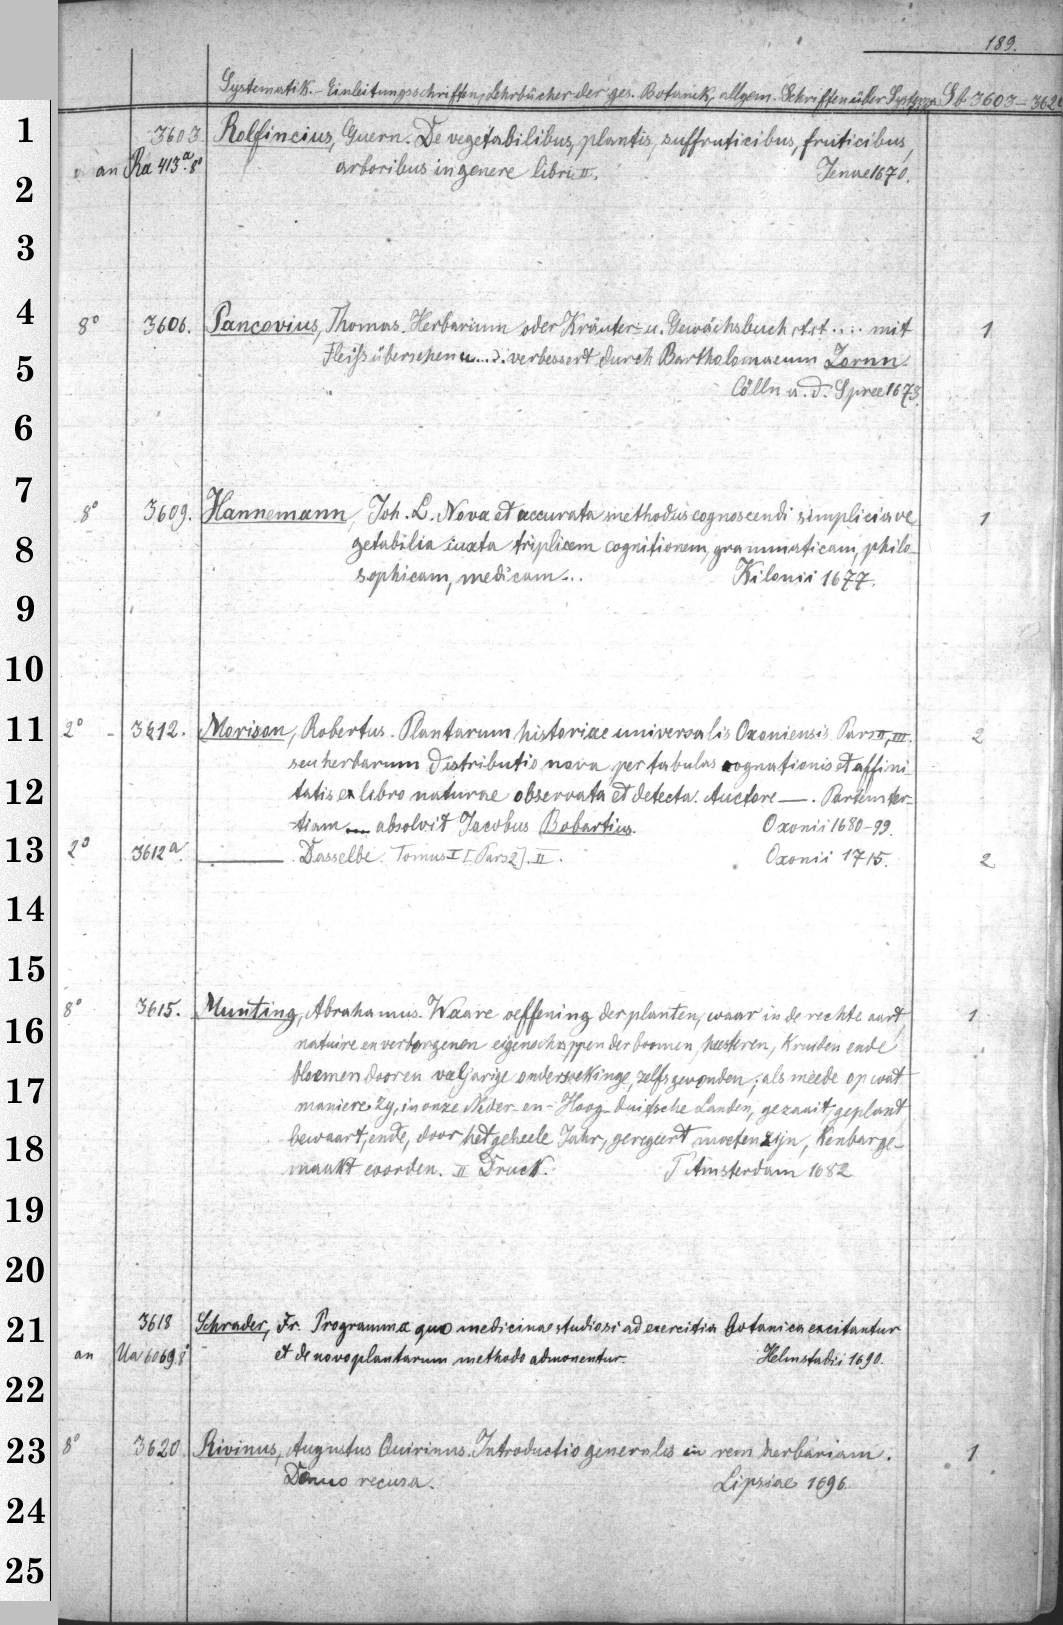 189.
Systematik. - Einleitungsschriften, Lehrbücher der ges. Botanik, allgem. Schriften über Systeme St 3603-362
1 3603 Rolfincius, Guern. De vegetabilibus, plantis, suffruticibus, fruticibus,
an Ra 413a. 8° arboribus in genere libri II. Jenae 1670.
2
3
4 8° 3606. Pancovius, Thomas. Herbarium oder Kräuter- u. Gewächsbuch etst .... mit 1
5 Fleiss übersehen u... verbessert durch Bartholomaeum Zornn.
Cölln a. d. Spree 1673.
6
7 8° 3609. Hannemann, Joh. L. Nova et accurata methodus cognoscendi simplicia ve 1
8 getabilia iuxta triplicem cognitionem, grammaticam, philo-
sophicam, medicam... Kilonii 1677.
9
10
11 2° - 3612. Morison, Robertus. Plantarum historiae universalis Oxoniensis Pars II, III. 2
seu herbarum distributio nova per tabulas cognationis et affini
12 tatis ex libro naturae observata et detecta. Auctore —. Partem ter-
tiam ... absolvit Jacobus Bobartius. Oxonii 1680-99.
13 2° 3612a. ——— Dasselbe. Tomus I [Pars 2]. II. Oxonii 1715. 2
14
15
16 8° 3615. Munting, Abrahamus. Waare oeffening der planten, waar in de rechte aart, 1
natuire en verborgenen eigenschappen der boomen, heesteren, Kruiden ende
17 bloemen dooren veeljarige ondersoekinge, zelfs gevonden; als meede op wat
maniere zy, in onze Neder- en- Hoog- duitsche Landen, gezaait, geplant
18 bewaart, ende, door het geheele Jahr, geregeert moeten zijn, Kenbar ge-
maakt woorden. II Druck. T'Amsterdam 1682
19
20
21 3618 Schrader, Fr. Programma quo medicinae studiosi ad exercitia botanica excitantur
an Ua 6069.8° et de novo plantarum methodo admonentur. Helmstadii 1690.
22
23 8° 3620 Rivinus, Augustus Quirinus. Introductio generalis in rem herbariam. 1
Denuo recusa. Lipsiae 1696
24
25